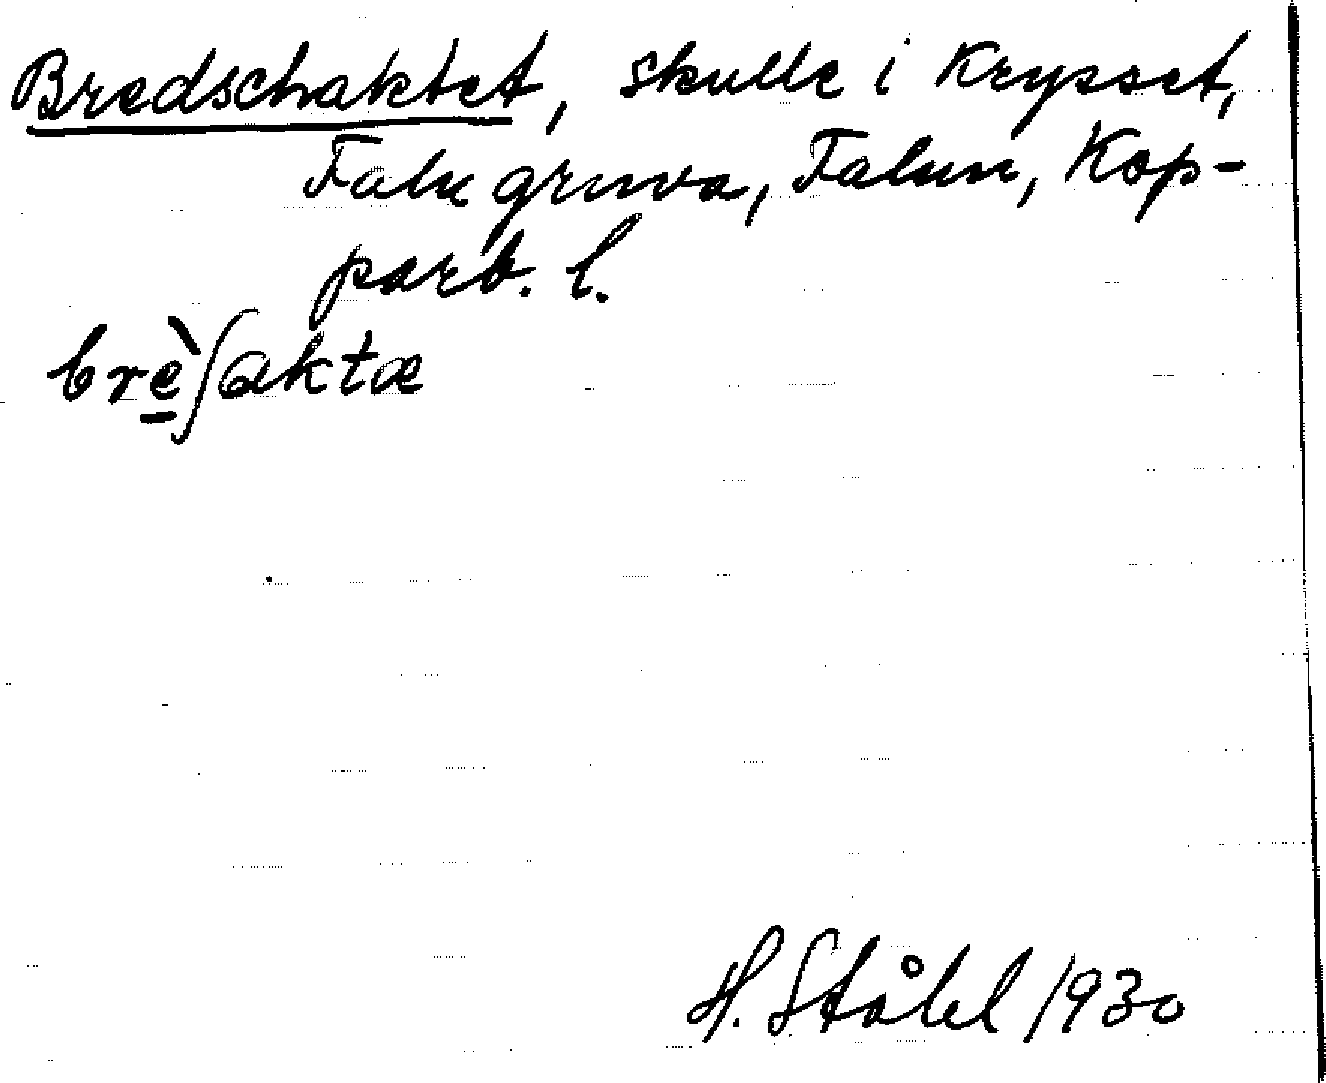 Bredschaktet, skulle i Krysset,
Falu gruva, Falun, Kop-
parb. l.
brèʃaktæ
H. Ståhl 1930